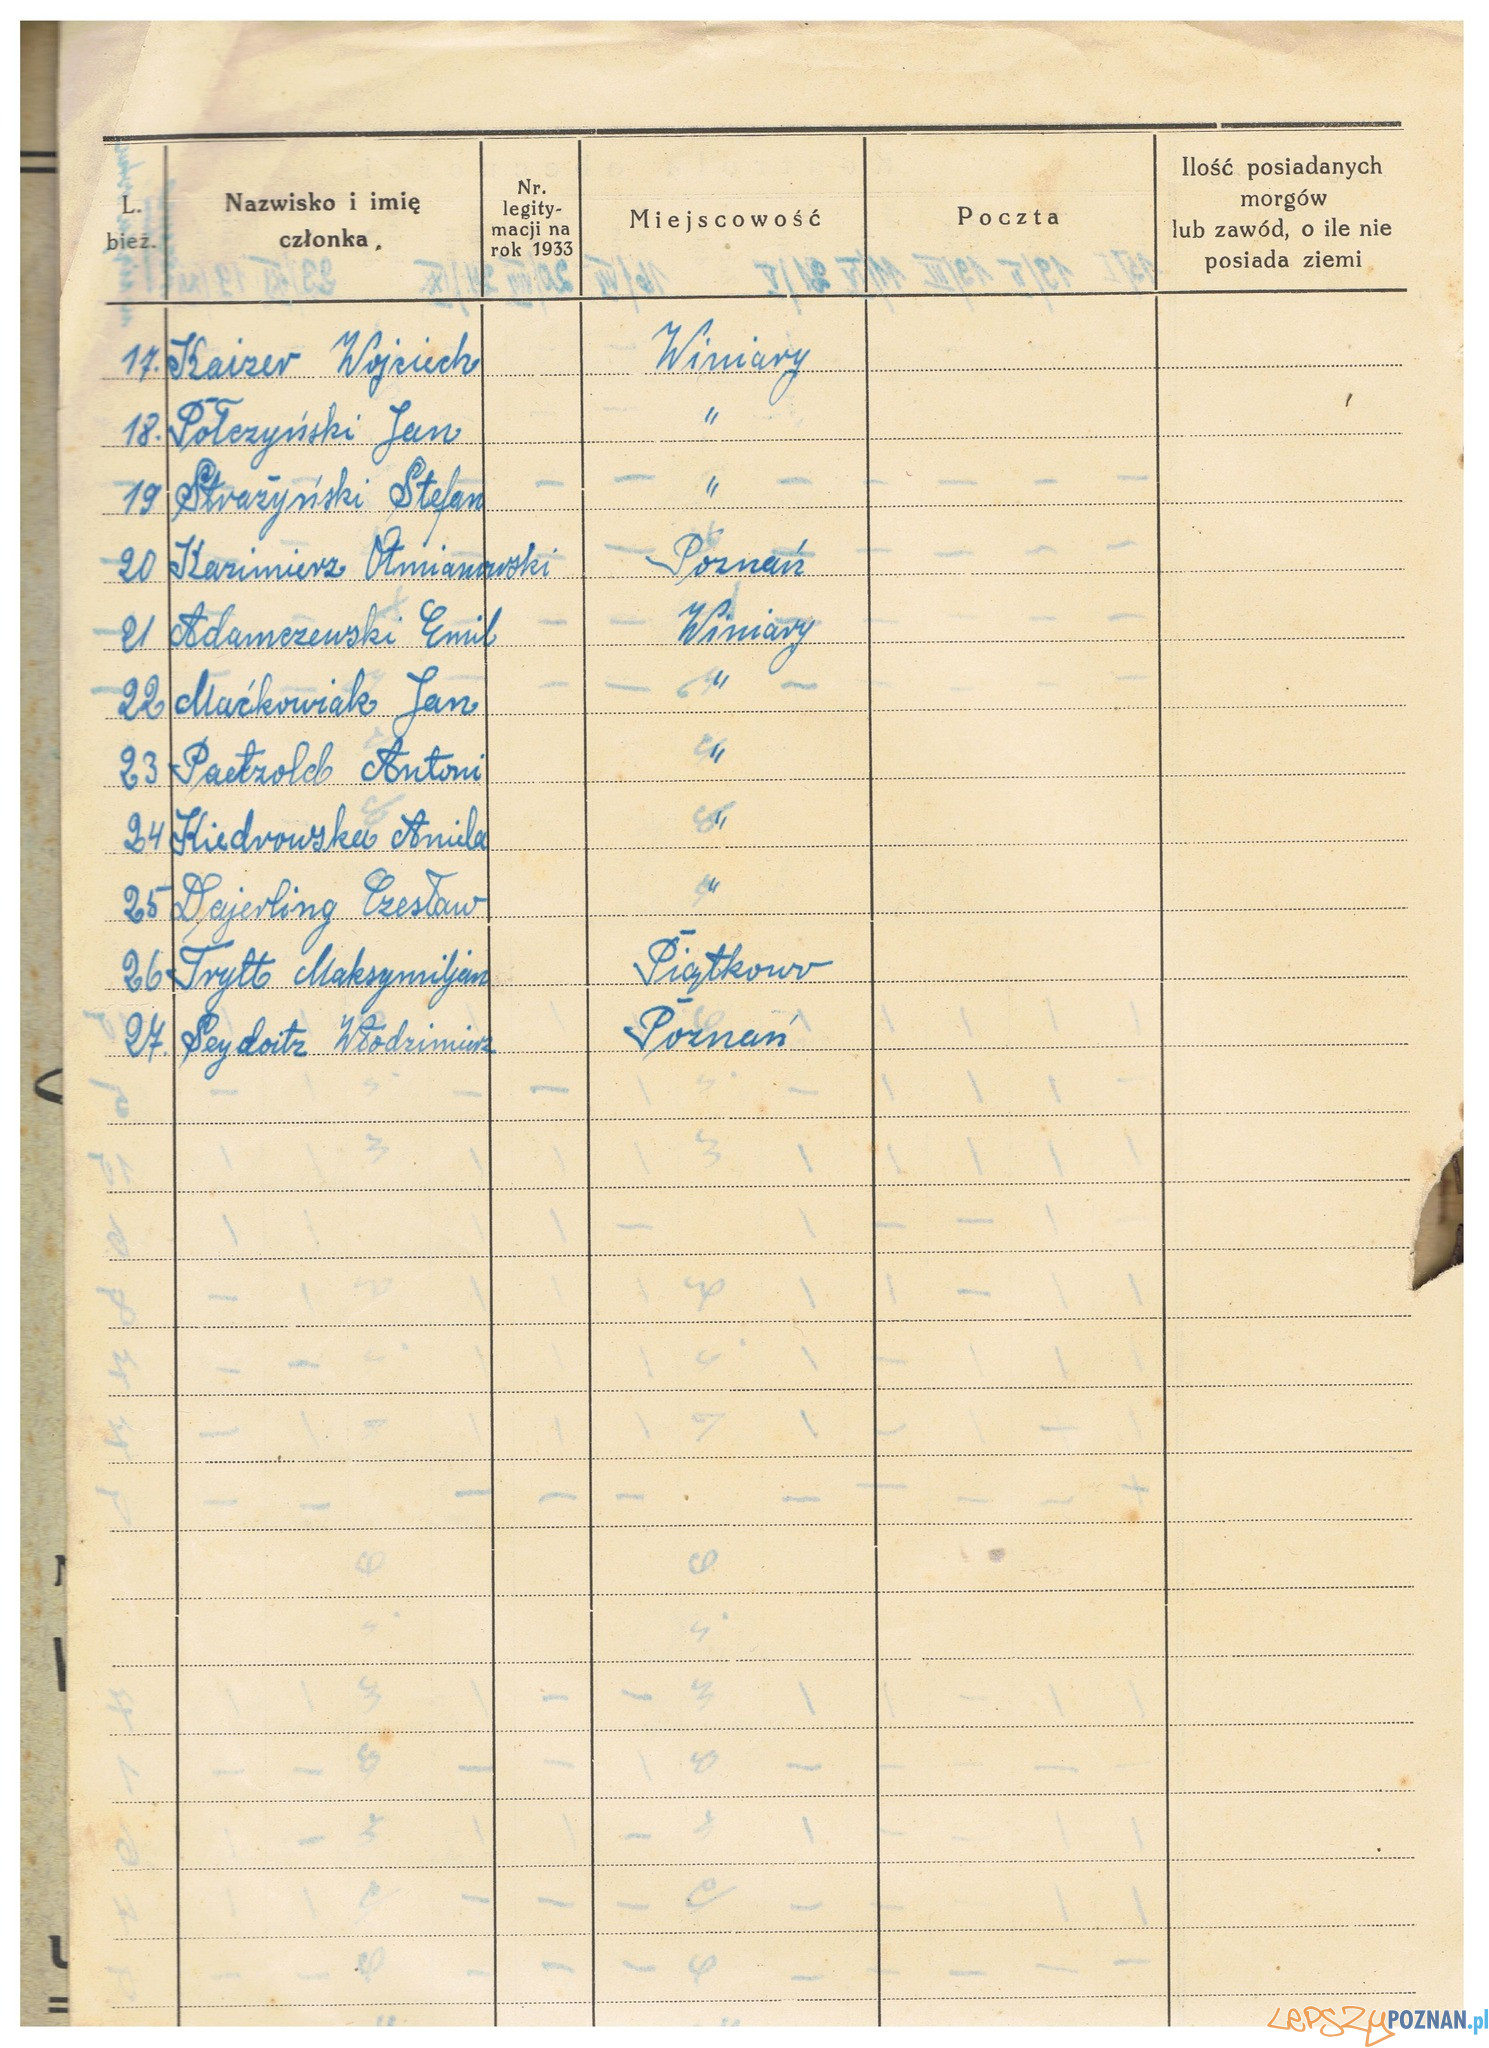 L. bież.
Nazwisko i imię członka
Nr. legity-macji na rok 1933
Miejscowość
Poczta
Ilość posiadanych morgów lub zawód, o ile nie posiada ziemi
17. Kaizer Wojciech Winiary
18. Połczyński Jan "
19 Strażyński Stefan "
20 Kazimierz Otmianowski Poznań
21 Adamczewski Emil Winiary
22 Maćkowiak Jan "
23 Paetzold Antoni "
24 Kiedrowska Aniela "
25 Dajerling Czesław "
26 Trytt Maksymiljan Piątkowo
27. Seydoitz Włodzimierz Poznań
LEPSZY POZNAN.pl